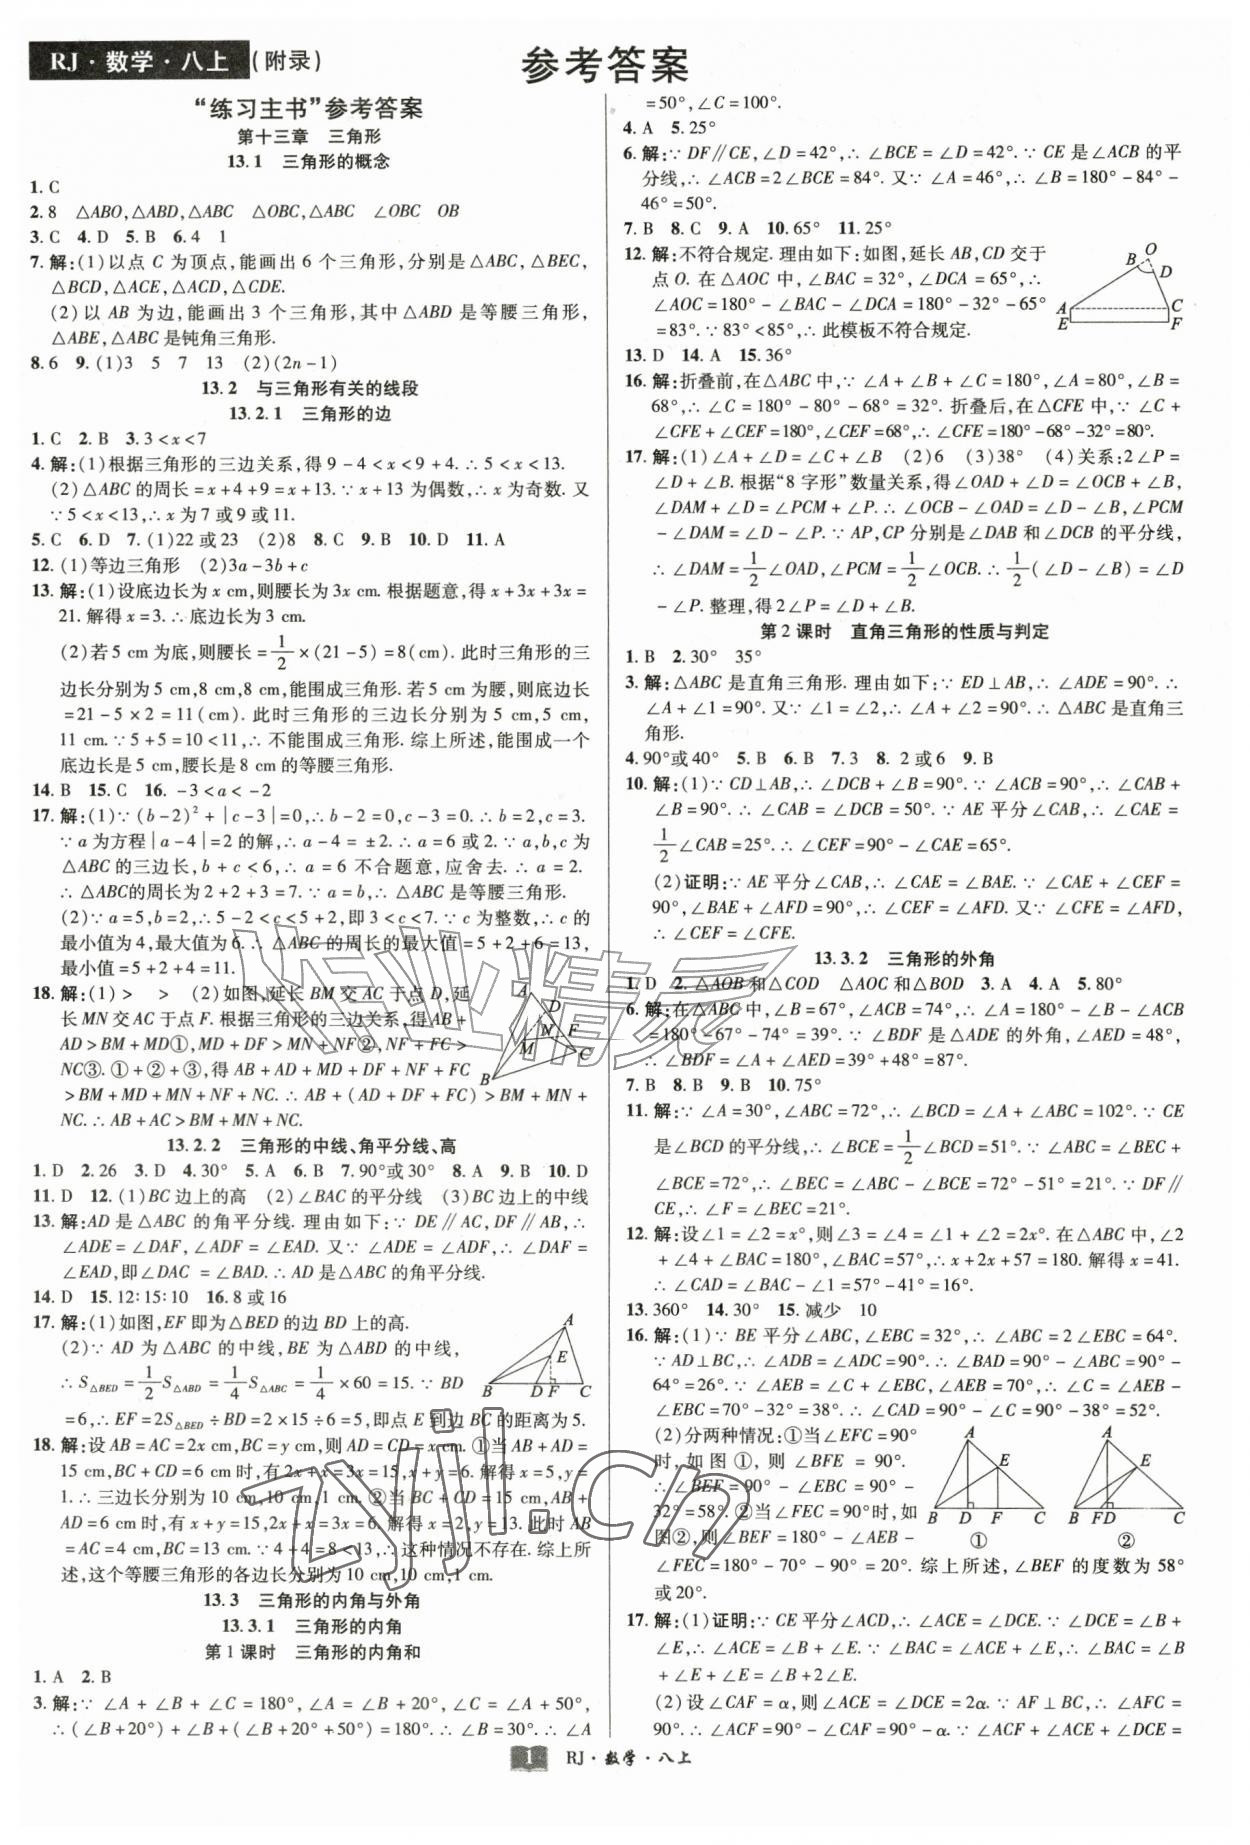 RJ·数学·八上(附录)
参考答案
“练习主书”参考答案
第十三章 三角形
13.1 三角形的概念
1. C
2. 8 △ABO,△ABD,△ABC △OBC,△ABC ∠OBC OB
3. C 4. D 5. B 6. 4 1
7. 解:(1)以点 C 为顶点,能画出 6 个三角形,分别是△ABC,△BEC,
△BCD,△ACE,△ACD,△CDE.
(2)以 AB 为边,能画出 3 个三角形,其中△ABD 是等腰三角形,
△ABE,△ABC 是钝角三角形.
8. 6 9. (1)3 5 7 13 (2)(2n-1)
13.2 与三角形有关的线段
13.2.1 三角形的边
1. C 2. B 3. 3<x<7
4. 解:(1)根据三角形的三边关系,得 9-4<x<9+4.∴5<x<13.
(2)△ABC 的周长=x+4+9=x+13.∵x+13 为偶数,∴x 为奇数. 又
∵5<x<13,∴x 为 7 或 9 或 11.
5. C 6. D 7. (1)22 或 23 (2)8 8. C 9. B 10. D 11. A
12. (1)等边三角形 (2)3a-3b+c
13. 解:(1)设底边长为 x cm,则腰长为 3x cm. 根据题意,得 x+3x+3x=
21. 解得 x=3.∴底边长为 3 cm.
(2)若 5 cm 为底,则腰长=1/2×(21-5)=8(cm). 此时三角形的三
边长分别为 5 cm,8 cm,8 cm,能围成三角形. 若 5 cm 为腰,则底边长
=21-5×2=11(cm). 此时三角形的三边长分别为 5 cm,5 cm,
11 cm.∵5+5=10<11,∴不能围成三角形. 综上所述,能围成一个
底边长是 5 cm,腰长是 8 cm 的等腰三角形.
14. B 15. C 16. -3<a<-2
17. 解:(1)∵(b-2)²+|c-3|=0,∴b-2=0,c-3=0.∴b=2,c=3.
∵a 为方程|a-4|=2 的解,∴a-4=±2.∴a=6 或 2.∵a,b,c 为
△ABC 的三边长,b+c<6,∴a=6 不合题意,应舍去.∴a=2.
∴△ABC的周长为 2+2+3=7.∵a=b,∴△ABC 是等腰三角形.
(2)∵a=5,b=2,∴5-2<c<5+2,即 3<c<7.∵c 为整数,∴c 的
最小值为 4,最大值为 6.∴△ABC 的周长的最大值=5+2+6=13,
最小值=5+2+4=11.
18. 解:(1)> > (2)如图,延长 BM 交 AC 于点 D,延
长 MN 交 AC 于点 F. 根据三角形的三边关系,得 AB+
AD>BM+MD①,MD+DF>MN+NF②,NF+FC>
NC③. ①+②+③,得 AB+AD+MD+DF+NF+FC
>BM+MD+MN+NF+NC.∴AB+(AD+DF+FC)>BM+MN+
NC.∴AB+AC>BM+MN+NC.
A
N F
M C
B
13.2.2 三角形的中线、角平分线、高
1. D 2. 26 3. D 4. 30° 5. A 6. B 7. 90°或 30° 8. A 9. B 10. D
11. D 12. (1)BC 边上的高 (2)∠BAC 的平分线 (3)BC 边上的中线
13. 解:AD 是△ABC 的角平分线. 理由如下:∵DE∥AC,DF∥AB,∴
∠ADE=∠DAF,∠ADF=∠EAD. 又∵∠ADF=∠ADE,∴∠DAF=
∠EAD,即∠DAC=∠BAD.∴AD 是△ABC 的角平分线.
14. D 15. 12:15:10 16. 8 或 16
17. 解:(1)如图,EF 即为△BED 的边 BD 上的高.
(2)∵AD 为△ABC 的中线,BE 为△ABD 的中线,
∴S△BED=1/2S△ABD=1/4S△ABC=1/4×60=15.∵BD
=6,∴EF=2S△BED÷BD=2×15÷6=5,即点 E 到边 BC 的距离为 5.
A
E
B D F C
18. 解:设 AB=AC=2x cm,BC=y cm,则 AD=CD=x cm. ①当 AB+AD=
15 cm,BC+CD=6 cm 时,有 2x+x=3x=15,x+y=6. 解得 x=5,y=
1.∴三边长分别为 10 cm,10 cm,1 cm. ②当 BC+CD=15 cm,AB+
AD=6 cm 时,有 x+y=15,2x+x=3x=6. 解得 x=2,y=13. 此时 AB
=AC=4 cm,BC=13 cm.∵4+4=8<13,∴这种情况不存在. 综上所
述,这个等腰三角形的各边长分别为 10 cm,10 cm,1 cm.
13.3 三角形的内角与外角
13.3.1 三角形的内角
第 1 课时 三角形的内角和
1. A 2. B
3. 解:∵∠A+∠B+∠C=180°,∠A=∠B+20°,∠C=∠A+50°,
∴(∠B+20°)+∠B+(∠B+20°+50°)=180°.∴∠B=30°.∴∠A
=50°,∠C=100°.
4. A 5. 25°
6. 解:∵DF∥CE,∠D=42°,∴∠BCE=∠D=42°.∵CE 是∠ACB 的平
分线,∴∠ACB=2∠BCE=84°. 又∵∠A=46°,∴∠B=180°-84°-
46°=50°.
7. B 8. C 9. A 10. 65° 11. 25°
12. 解:不符合规定. 理由如下:如图,延长 AB,CD 交于
点 O. 在△AOC 中,∠BAC=32°,∠DCA=65°,∴
∠AOC=180°-∠BAC-∠DCA=180°-32°-65°
=83°.∵83°<85°,∴此模板不符合规定.
O
B D
A C
E F
13. D 14. A 15. 36°
16. 解:折叠前,在△ABC 中,∵∠A+∠B+∠C=180°,∠A=80°,∠B=
68°,∴∠C=180°-80°-68°=32°. 折叠后,在△CFE 中,∵∠C+
∠CFE+∠CEF=180°,∠CEF=68°,∴∠CFE=180°-68°-32°=80°.
17. 解:(1)∠A+∠D=∠C+∠B (2)6 (3)38° (4)关系:2∠P=
∠D+∠B. 根据“8 字形”数量关系,得∠OAD+∠D=∠OCB+∠B,
∠DAM+∠D=∠PCM+∠P.∴∠OCB-∠OAD=∠D-∠B,∠PCM
-∠DAM=∠D-∠P.∵AP,CP 分别是∠DAB 和∠DCB 的平分线,
∴∠DAM=1/2∠OAD,∠PCM=1/2∠OCB.∴1/2(∠D-∠B)=∠D
-∠P. 整理,得 2∠P=∠D+∠B.
第 2 课时 直角三角形的性质与判定
1. B 2. 30° 35°
3. 解:△ABC 是直角三角形. 理由如下:∵ED⊥AB,∴∠ADE=90°.∴
∠A+∠1=90°. 又∵∠1=∠2,∴∠A+∠2=90°.∴△ABC 是直角三
角形.
4. 90°或 40° 5. B 6. B 7. 3 8. 2 或 6 9. B
10. 解:(1)∵CD⊥AB,∴∠DCB+∠B=90°.∵∠ACB=90°,∴∠CAB+
∠B=90°.∴∠CAB=∠DCB=50°.∵AE 平分∠CAB,∴∠CAE=
1/2∠CAB=25°.∴∠CEF=90°-∠CAE=65°.
(2)证明:∵AE 平分∠CAB,∴∠CAE=∠BAE.∵∠CAE+∠CEF=
90°,∠BAE+∠AFD=90°,∴∠CEF=∠AFD. 又∵∠CFE=∠AFD,
∴∠CEF=∠CFE.
13.3.2 三角形的外角
1. D 2. △AOB 和△COD △AOC 和△BOD 3. A 4. A 5. 80°
6. 解:在△ABC 中,∠B=67°,∠ACB=74°,∴∠A=180°-∠B-∠ACB
=180°-67°-74°=39°.∵∠BDF 是△ADE 的外角,∠AED=48°,
∴∠BDF=∠A+∠AED=39°+48°=87°.
7. B 8. B 9. B 10. 75°
11. 解:∵∠A=30°,∠ABC=72°,∴∠BCD=∠A+∠ABC=102°.∵CE
是∠BCD 的平分线,∴∠BCE=1/2∠BCD=51°.∵∠ABC=∠BEC+
∠BCE=72°,∴∠BEC=∠ABC-∠BCE=72°-51°=21°.∵DF∥
CE,∴∠F=∠BEC=21°.
12. 解:设∠1=∠2=x°,则∠3=∠4=∠1+∠2=2x°. 在△ABC 中,∠2
+∠4+∠BAC=180°,∠BAC=57°,∴x+2x+57=180. 解得 x=41.
∴∠CAD=∠BAC-∠1=57°-41°=16°.
13. 360° 14. 30° 15. 减少 10
16. 解:(1)∵BE 平分∠ABC,∠EBC=32°,∴∠ABC=2∠EBC=64°.
∵AD⊥BC,∴∠ADB=∠ADC=90°.∴∠BAD=90°-∠ABC=90°-
64°=26°.∵∠AEB=∠C+∠EBC,∠AEB=70°,∴∠C=∠AEB-
∠EBC=70°-32°=38°.∴∠CAD=90°-∠C=90°-38°=52°.
(2)分两种情况:①当∠EFC=90°
时,如图①,则∠BFE=90°.
∴∠BEF=90°-∠EBC=90°-
32°=58°. ②当∠FEC=90°时,如
图②,则∠BEF=180°-∠AEB-
∠FEC=180°-70°-90°=20°. 综上所述,∠BEF 的度数为 58°
或 20°.
A
E
B D F C
①
A
E
B F D C
②
17. 解:(1)证明:∵CE 平分∠ACD,∴∠ACE=∠DCE.∵∠DCE=∠B+
∠E,∴∠ACE=∠B+∠E.∵∠BAC=∠ACE+∠E,∴∠BAC=∠B
+∠E+∠E=∠B+2∠E.
(2)设∠CAF=α,则∠ACE=∠DCE=2α.∵AF⊥BC,∴∠AFC=
90°.∴∠ACF=90°-∠CAF=90°-α.∵∠ACF+∠ACE+∠DCE=
1 RJ·数学·八上
作业精灵
zyjl.cn